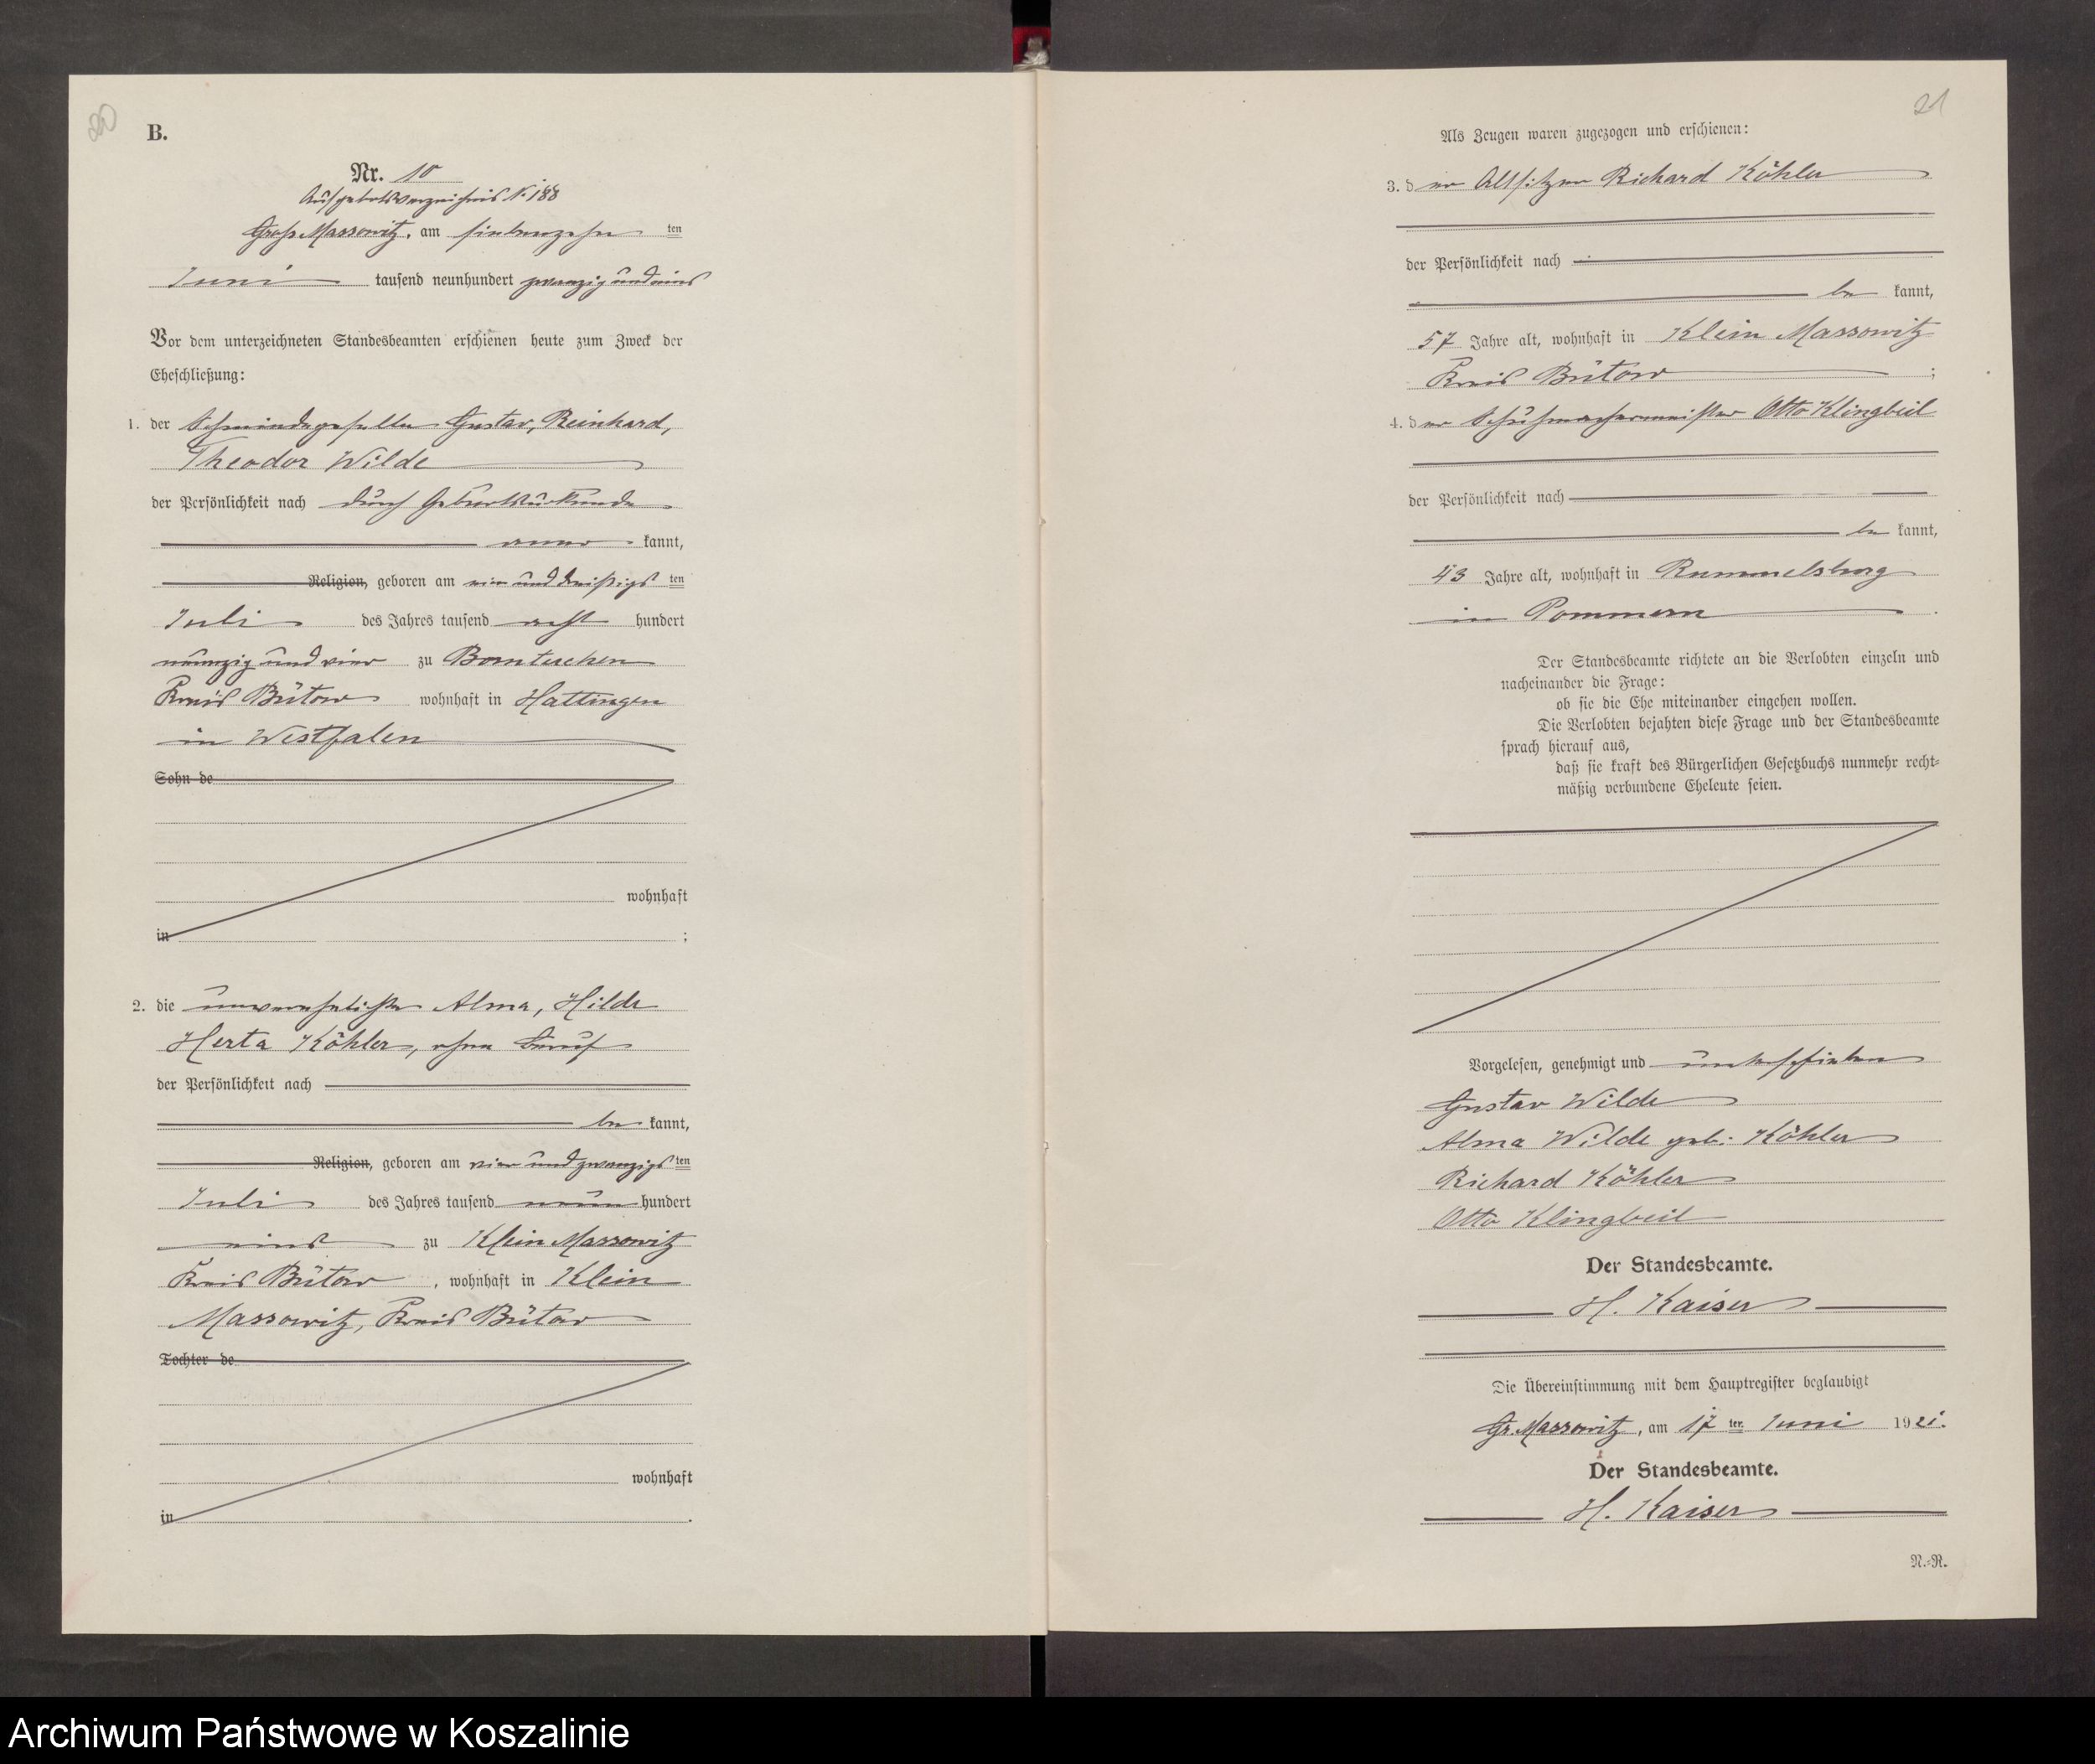 20
B.
Nr. 10
Aufgebotsverzeichnis N. 188
Groß Massowitz, am siebenzehn ten
Juni tausend neunhundert zwanzig und eins
Vor dem unterzeichneten Standesbeamten erschienen heute zum Zweck der
Eheschließung:
1. der Schmiedegeselle Gustav, Reinhard,
Theodor Wilde
der Persönlichkeit nach durch Geburtsurkunde
aner kannt,
Religion, geboren am ein und dreißigs ten
Juli des Jahres tausend acht hundert
neunzig und vier zu Bornteuchen
Kreis Bütow wohnhaft in Hattingen
in Westfalen
Sohn de
wohnhaft
in ;
2. die unverehelichte Alma, Hilde
Herta Köhler, ohne Beruf
der Persönlichkeit nach
be kannt,
Religion, geboren am vier und zwanzigs ten
Juli des Jahres tausend neun hundert
eins zu Klein Massowitz
Kreis Bütow, wohnhaft in Klein
Massowitz, Kreis Bütow
Tochter de
wohnhaft
in .
21
Als Zeugen waren zugezogen und erschienen:
3. der Altsitzer Richard Köhler
der Persönlichkeit nach
be kannt,
57 Jahre alt, wohnhaft in Klein Massowitz
Kreis Bütow ;
4. der Schuhmachermeister Otto Klingbeil
der Persönlichkeit nach
be kannt,
43 Jahre alt, wohnhaft in Rummelsburg
in Pommern .
Der Standesbeamte richtete an die Verlobten einzeln und
nacheinander die Frage:
ob sie die Ehe miteinander eingehen wollen.
Die Verlobten bejahten diese Frage und der Standesbeamte
sprach hierauf aus,
daß sie kraft des Bürgerlichen Gesetzbuchs nunmehr recht-
mäßig verbundene Eheleute seien.
Vorgelesen, genehmigt und unterschrieben
Gustav Wilde
Alma Wilde geb. Köhler
Richard Köhler
Otto Klingbeil
Der Standesbeamte.
H. Kaiser
Die Übereinstimmung mit dem Hauptregister beglaubigt
Gr. Massowitz, am 17 ten Juni 1921.
Der Standesbeamte.
H. Kaiser
N.-R.
Archiwum Państwowe w Koszalinie